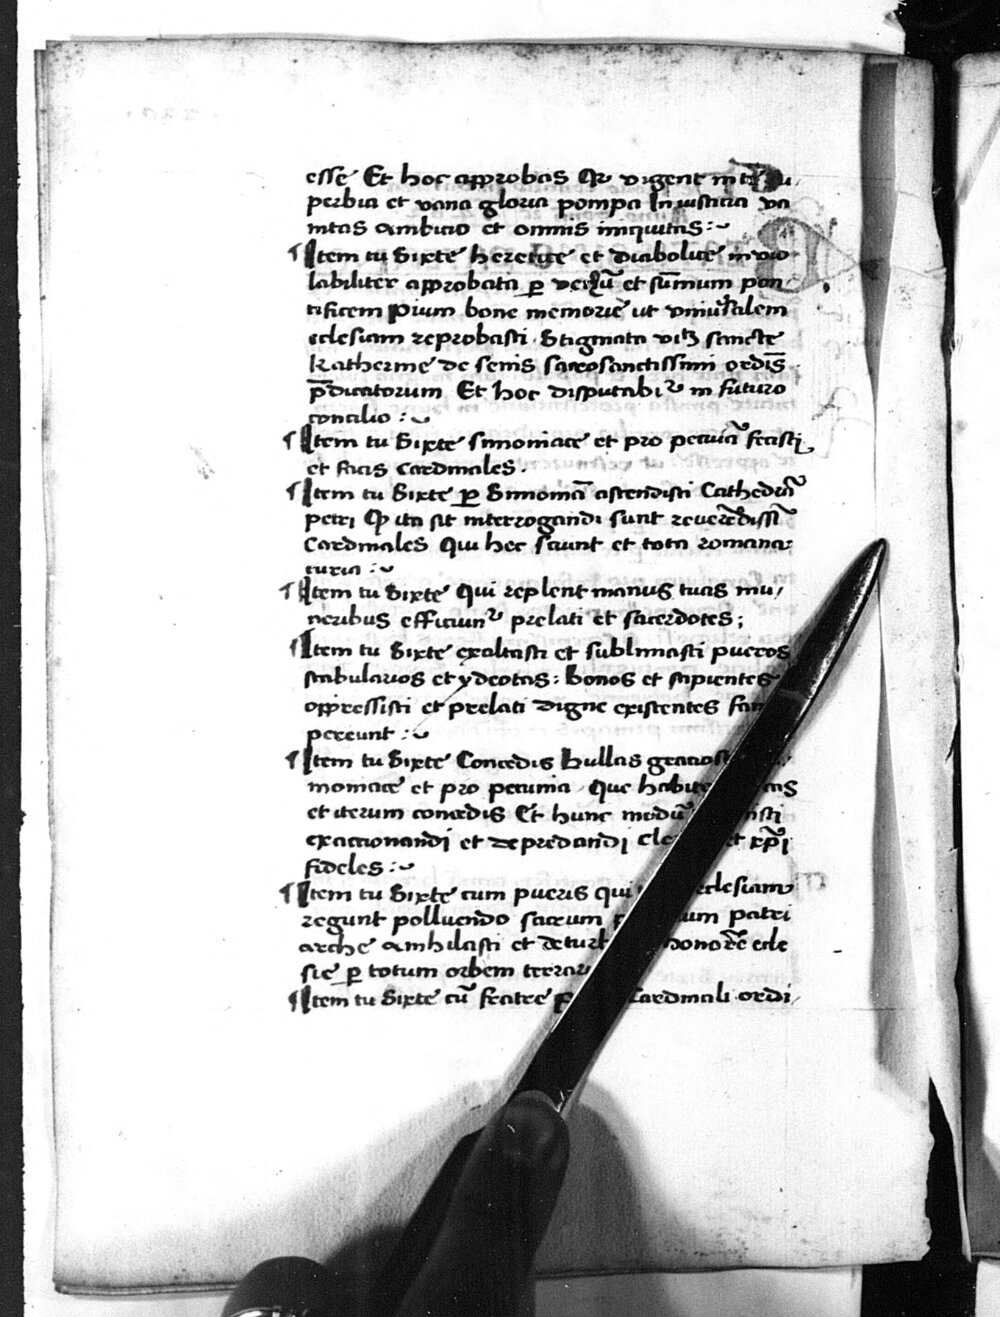 esse Et hoc approbas Qr vigent in te su
perbia et vana gloria pompa Iniusticia va
nitas ambicio et omnis iniquitas :~
¶ Item tu Sixte heretice et diabolice invio
labiliter approbata ꝑ et sūmum pon
tificem pium bone memorie ut vniuersalem
eclesiam reprobasti Stigmata sancte
Katherine de senis sacrosanctissimi ordīs
p̄dicatorum Et hoc disputabiᵗ in futuro
concilio :~
¶ Item tu Sixte simoniace et pro pecunia fecisti
et facis Cardinales .
¶ Item tu Sixte ꝑ Simoniā ascendisti Cathedrā
petri Qꝫ ita sit interrogandi sunt reuerēdissi
Cardinales Qui hec sciunt et tota romana
curia :~
¶ Item tu Sixte Qui replent manus tuas mu/
neribus efficiunᵗ prelati et sacerdotes ;
¶ Item tu Sixte exaltasti et sublimasti pueros
stabularios et ydeotas : bonos et sapientes
oppressisti et prelati digne existentes fam
pereunt :~
¶ Item tu Sixte Concedis bullas
moniace et pro pecunia Que
et iterum concedis Et hunc modū
exaccionandi et depredandi et xp̄i
fideles :~
¶ Item tu Sixte cum pueris qui eclesiam
regunt polluendo sacrum patri
arche anichilasti et honorē ecle
sie ꝑ totum orbem
¶ Item tu Sixte cū fratre Cardinali ordi